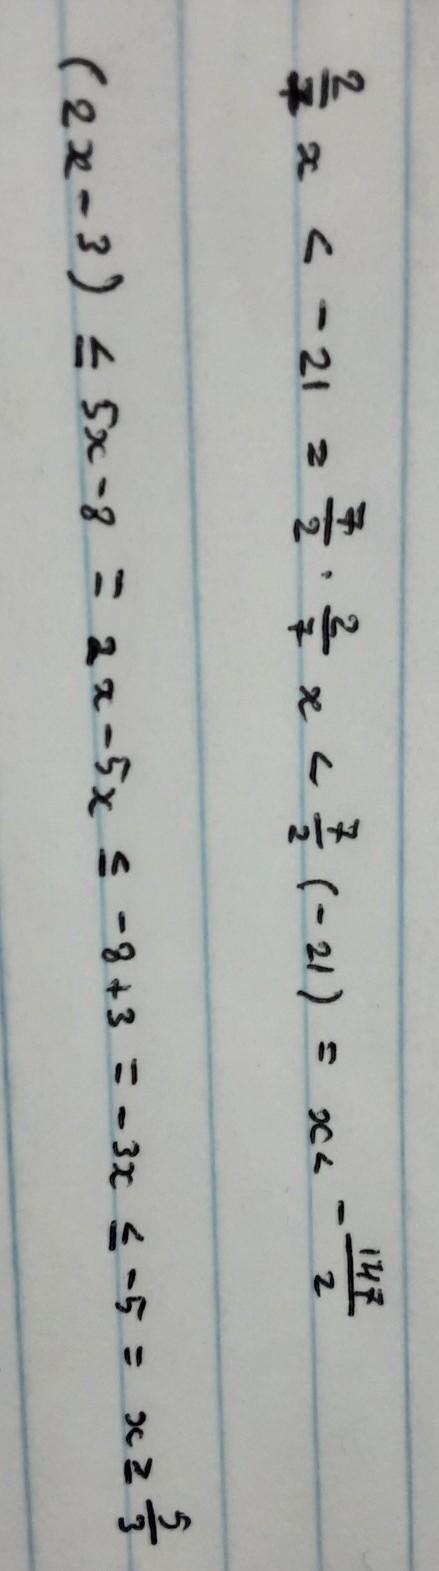 2/7 x < -21 = 7/2 · 2/7 x < 7/2 (-21) = x < - 147/2
(2x - 3) ≤ 5x - 8 = 2x - 5x ≤ -8 + 3 = -3x ≤ -5 = x ≥ 5/3